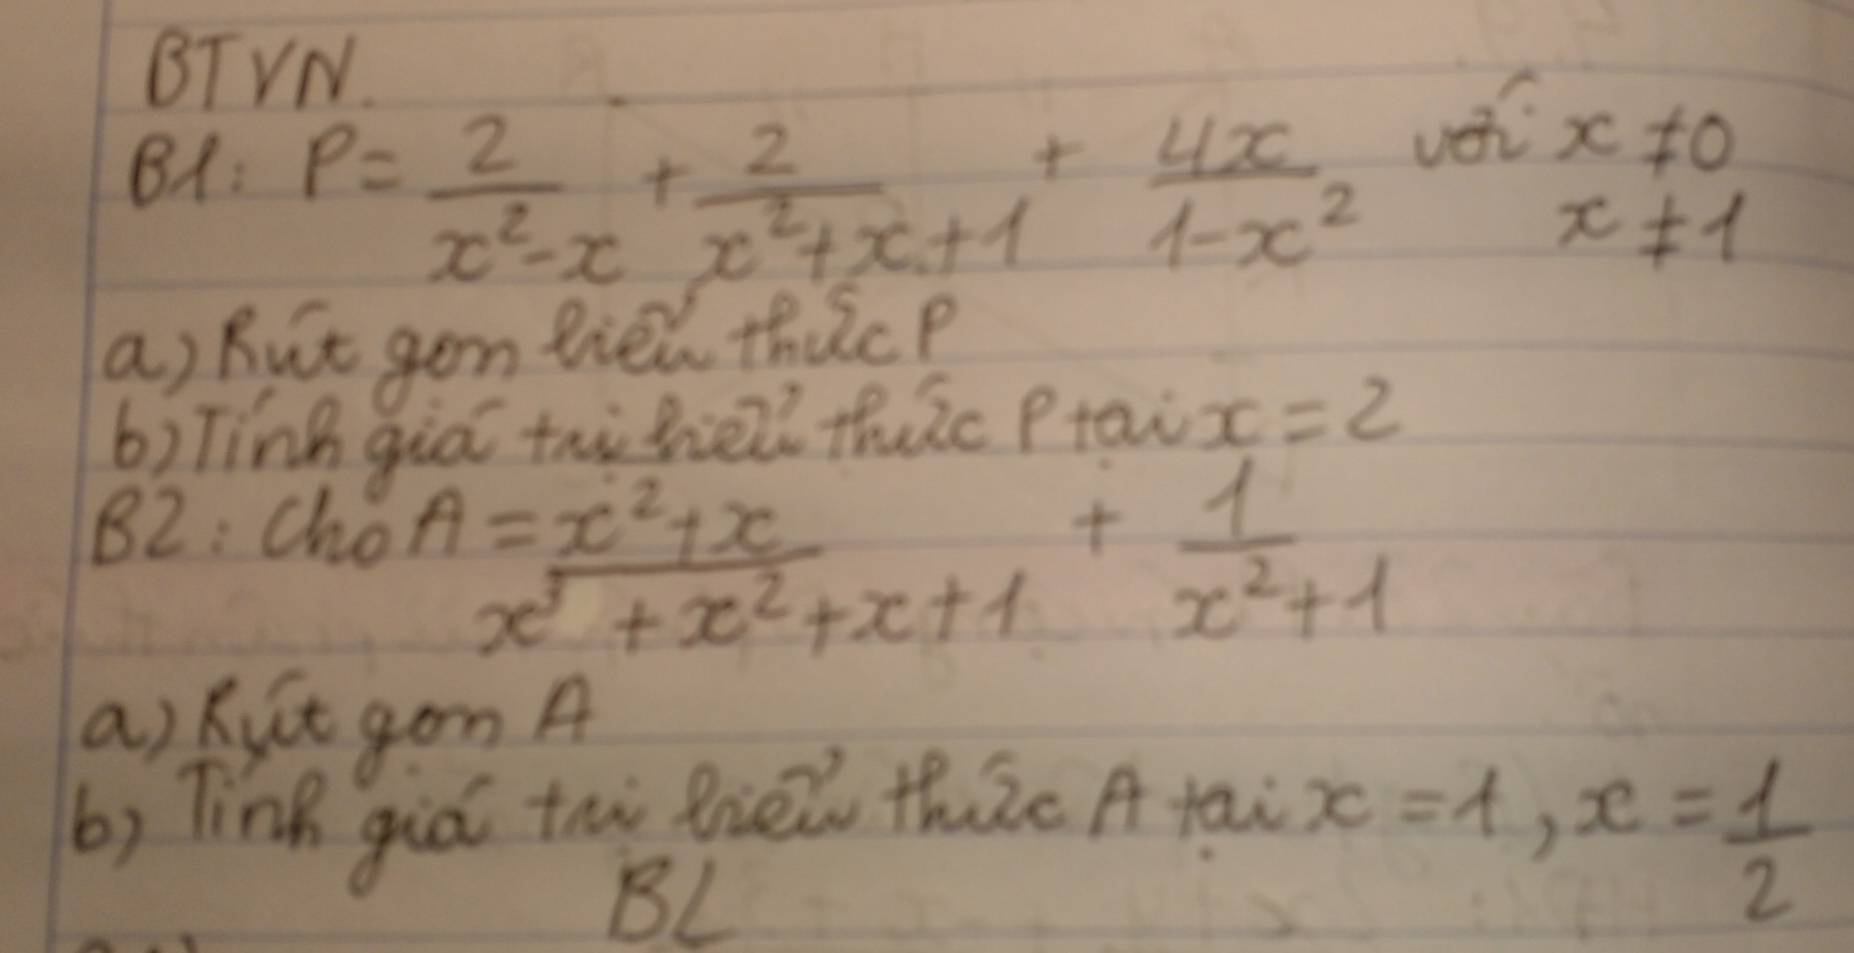 BTVN.
B1: P = 2/(x² - x) + 2/(x² + x + 1) + 4x/(1 - x²) với x ≠ 0
x ≠ 1
a) Rút gọn biểu thức P
b) Tính giá trị biểu thức P tại x = 2
B2: Cho A = (x² + x)/(x³ + x² + x + 1) + 1/(x² + 1)
a) Rút gọn A
b) Tính giá trị biểu thức A tại x = 1, x = 1/2
BL